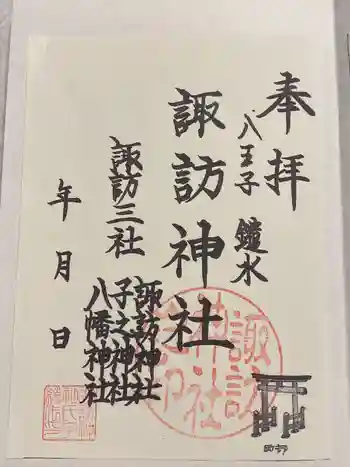 奉拝
八王子 鑓水
諏訪神社
諏訪三社
諏訪神社
子之神社
八幡神社
年 月 日
諏訪神社